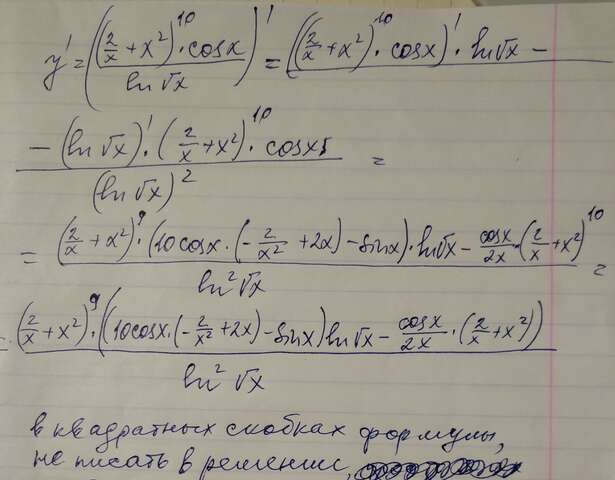 y' = (((2/x + x²)^10 · cosx)/(ln √x))' = ((2/x + x²)^10 · cosx)' · ln√x −
− (ln √x)' · (2/x + x²)^10 · cosx =
(ln √x)²
= ((2/x + x²)^9 · (10cosx · (−2/x² + 2x) − sinx) · ln√x − cosx/2x · (2/x + x²)^10)/(ln² √x) =
= ((2/x + x²)^9 · ((10cosx · (−2/x² + 2x) − sinx) ln √x − cosx/2x · (2/x + x²)))/(ln² √x)
в квадратных скобках формулы,
не писать в решении,